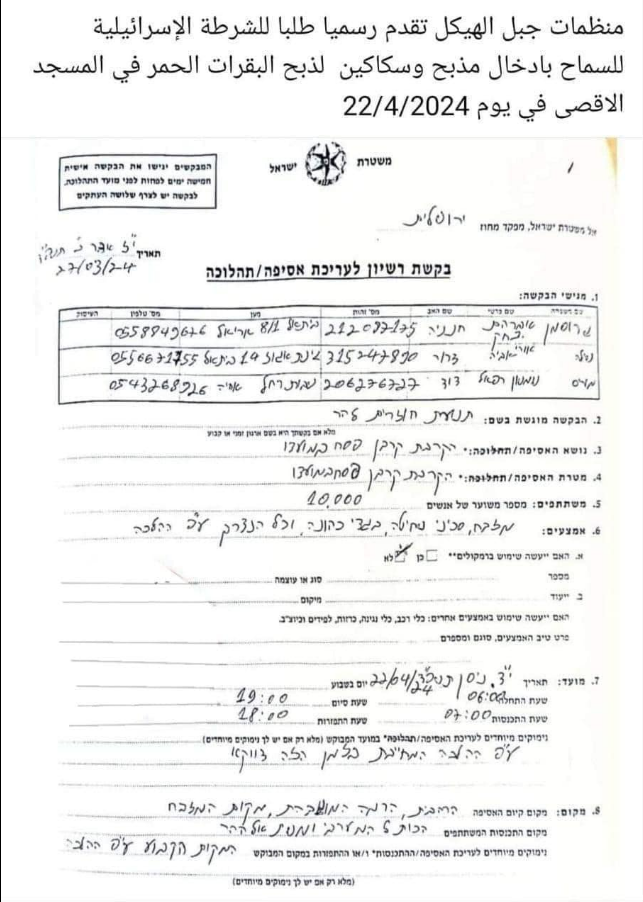 منظمات جبل الهيكل تقدم رسميا طلبا للشرطة الإسرائيلية
للسماح بادخال مذبح وسكاكين لذبح البقرات الحمر في المسجد
الاقصى في يوم 22/4/2024
משטרת ישראל
המבקשים יגישו את הבקשה אישית
חמישה ימים לפחות לפני מועד התהלוכה.
לבקשה יש לצרף שלושה העתקים
אל משטרת ישראל, מפקד מחוז ירושלים
תאריך י"ז אדר ב'
27/03/24
בקשת רשיון לעריכת אסיפה/תהלוכה
1. מגישי הבקשה:
שם משפחה שם פרטי שם האב מס' זהות מען מס' טלפון העיסוק
גרוסמן חנניה 212087175 אריאל 8/1 0558849676
דרור 315247890 14 0556671755
מויס רפאל דוד 206276727 אריה 0543268926
2. הבקשה מוגשת בשם: תנועת חוזרים להר
מלא אם בקשתך היא בשם ארגון זמני או קבוע
3. נושא האסיפה/תהלוכה:* הקרבת קרבן פסח במועדו
4. מטרת האסיפה/תהלוכה:* הקרבת קרבן פסח במועדו
5. משתתפים: מספר משוער של אנשים 10,000
6. אמצעים: מזבח, סכיני שחיטה, בגדי כהונה, וכל הנצרך ע"פ ההלכה
א. האם ייעשה שימוש ברמקולים** כן לא
מספר סוג או עוצמה
ב. ייעוד מיקום
האם ייעשה שימוש באמצעים אחרים: כלי רכב, כלי נגינה, כרזות, לפידים וכיוצ"ב.
פרט טיב האמצעים, סוגם ומספרם
7. מועד: תאריך י"ד ניסן תשפ"ד 22/04/24 יום בשבוע
שעת התחלה 06:00 שעת סיום 19:00
שעת התכנסות 07:00 שעת התפזרות 18:00
נימוקים מיוחדים לעריכת האסיפה/תהלוכה* במועד המבוקש (מלא רק אם יש לך נימוקים מיוחדים)
ע"פ ההלכה המחייבת בזמן הזה דווקא
8. מקום: מקום קיום האסיפה הר הבית, הרמה המוגבהת, מקום המזבח
מקום התכנסות המשתתפים הכותל המערבי ומשם אל ההר
נימוקים מיוחדים לעריכת האסיפה/ההתכנסות* ו/או ההתפזרות במקום המבוקש המקום הקבוע ע"פ ההלכה
(מלא רק אם יש לך נימוקים מיוחדים)